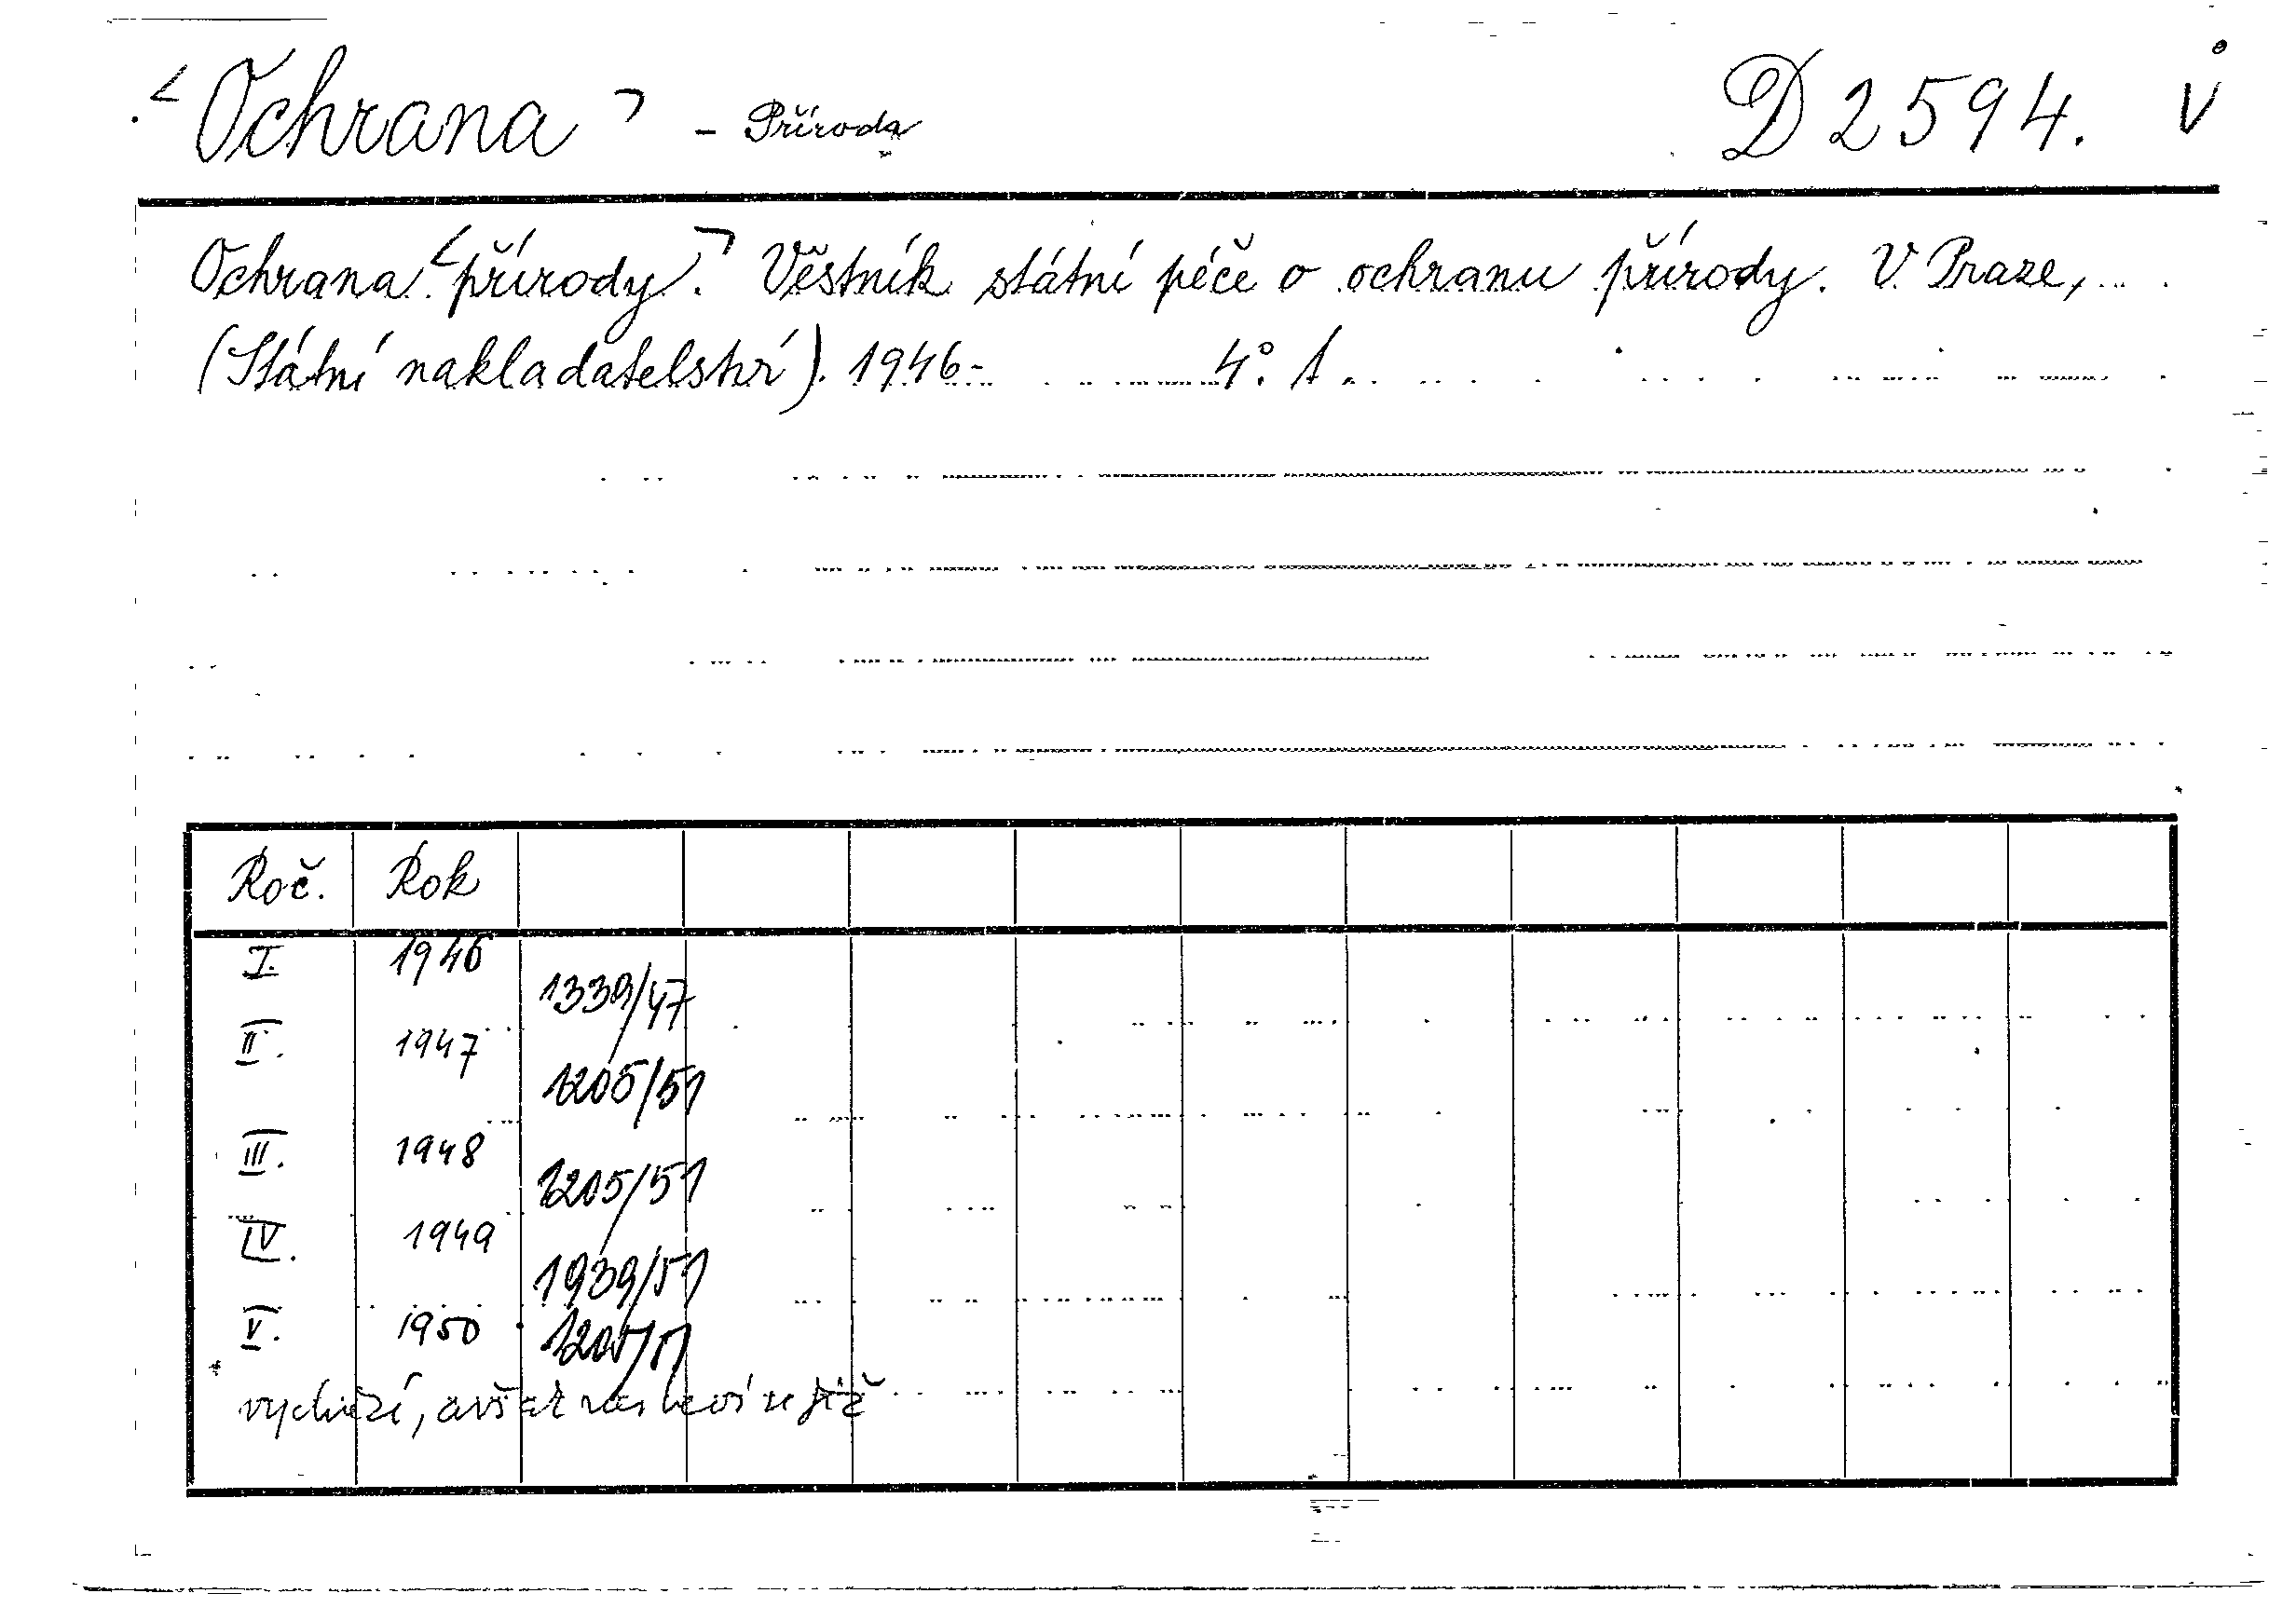 <Ochrana> - Příroda D 2594. V
Ochrana <přírody.> Věstník státní péče o ochranu přírody. V Praze,
(Státní nakladatelství). 1946- 4°. 1.
Roč. Rok
I. 1946 1339/47
II. 1947 1205/51
III. 1948 1205/51
IV. 1949 1939/51
V. 1950 1205/51
vychází, avšak neslevuje již